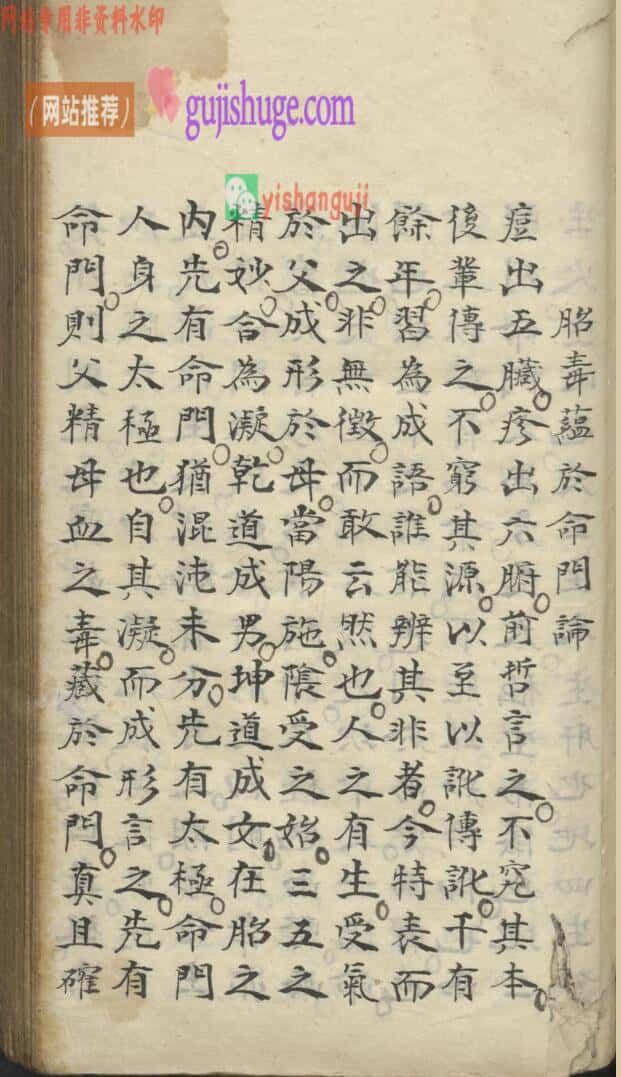 网站专用非资料水印
（网站推荐）
gujishuge.com
yishanguji
胎毒蘊於命門論
痘出五臟疹出六腑前哲言之不究其本
後輩傳之不窮其源以至以訛傳訛千有
餘年習為成語誰能辨其非者今特表而
出之非無徵而敢云然也人之有生受氣
於父成形於母當陽施陰受之始三五之
精妙合為凝乾道成男坤道成女在胎之
内先有命門猶混沌未分先有太極命門
人身之太極也自其凝而成形言之先有
命門則父精母血之毒藏於命門真且確